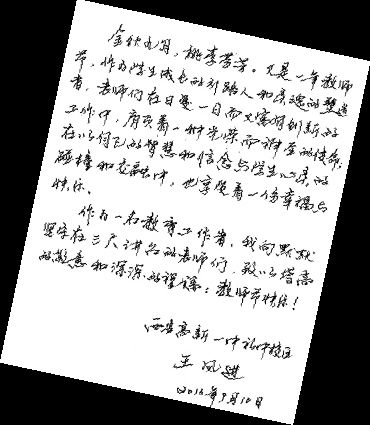 金秋九月,桃李芬芳。又是一年教师
节,作为学生成长的引路人和灵魂的塑造
者,老师们在日复一日而又富有创新的
工作中,肩负着一种光荣而神圣的使命,
在以何己的智慧和信念与学生心灵的
碰撞和交融中,也享受着一份幸福与
快乐。
作为一名教育工作者,我向默默
坚守在三尺讲台的老师们,致以崇高
的敬意和深深的祝福:教师节快乐!
西安高新一中初中校区
王凤进
2016年9月10日